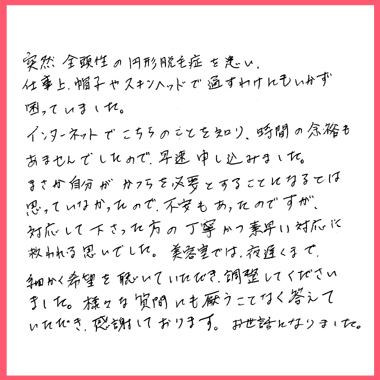 突然 全頭性の円形脱毛症を患い、
仕事上、帽子やスキンヘッドで過すわけにもいかず
困っていました。
インターネットでこちらのことを知り、時間の余裕も
ありませんでしたので、早速申し込みました。
まさか自分がかつらを必要とすることになるとは
思っていなかったので、不安もあったのですが、
対応して下さった方の丁寧かつ素早い対応に
救われる思いでした。美容室では、夜遅くまで、
細かく希望を聴いていただき、調整してください
ました。様々な質問にも厭うことなく答えて
いただき、感謝しております。お世話になりました。